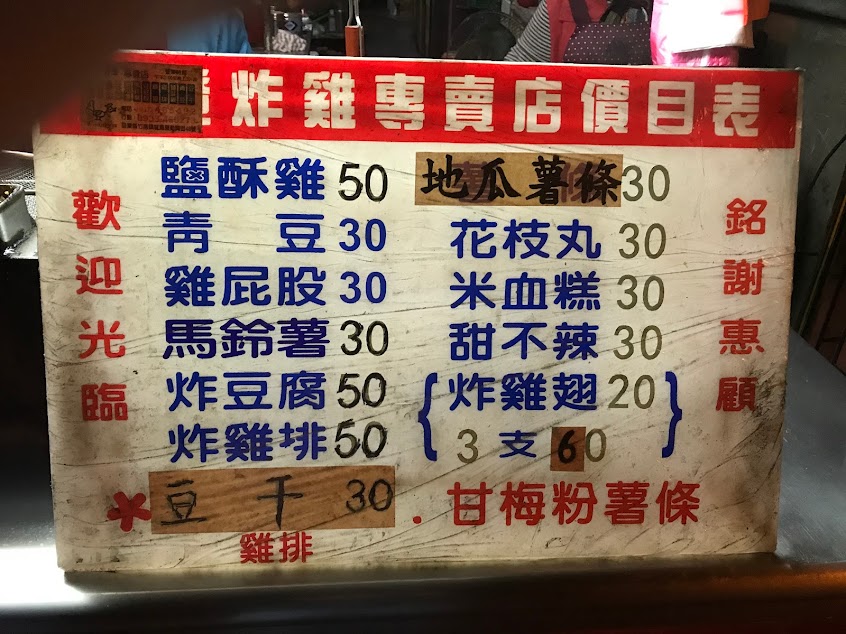 炸雞專賣店價目表
歡迎光臨
鹽酥雞 50
青豆 30
雞屁股 30
馬鈴薯 30
炸豆腐 50
炸雞排 50
豆干 30
雞排
地瓜薯條 30
花枝丸 30
米血糕 30
甜不辣 30
炸雞翅 20
3支 60
. 甘梅粉薯條
銘謝惠顧